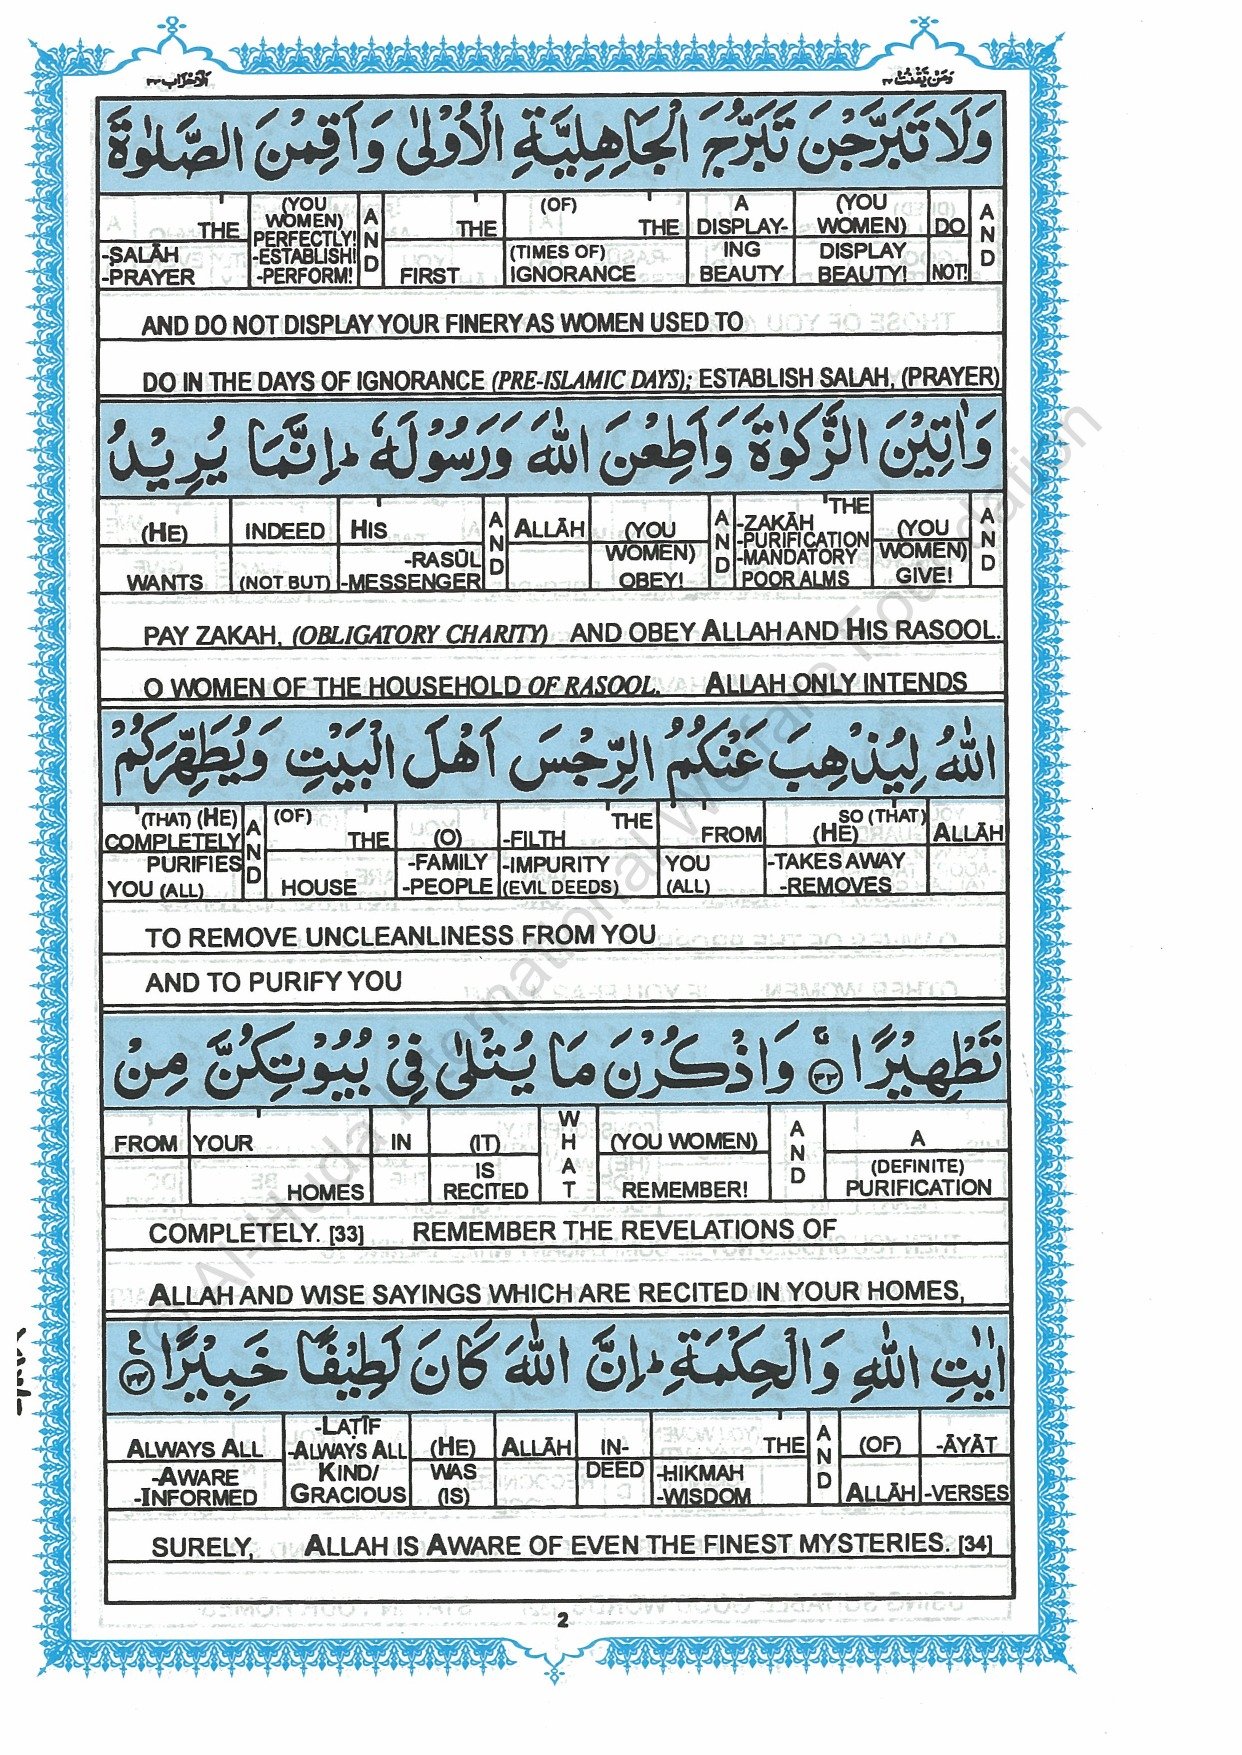 وَمَنْ يَّقْنُتْ ٢٢
اَلْاَحْزَاب ٣٣
وَلَا تَبَرَّجْنَ تَبَرُّجَ الْجَاهِلِيَّةِ الْاُوْلٰى وَاَقِمْنَ الصَّلٰوةَ
THE (YOU WOMEN) PERFECTLY! A N D THE (OF) THE A DISPLAY- (YOU WOMEN) DO A N D
-ṢALĀH -PRAYER -ESTABLISH! -PERFORM! FIRST (TIMES OF) IGNORANCE ING BEAUTY DISPLAY BEAUTY! NOT!
AND DO NOT DISPLAY YOUR FINERY AS WOMEN USED TO
DO IN THE DAYS OF IGNORANCE (PRE-ISLAMIC DAYS); ESTABLISH SALAH, (PRAYER)
وَاٰتِيْنَ الزَّكٰوةَ وَاَطِعْنَ اللّٰهَ وَرَسُوْلَهٗ ؕ اِنَّمَا يُرِيْدُ
(HE) INDEED HIS A N D ALLĀH (YOU A N D THE -ZAKĀH -PURIFICATION (YOU A N D
WANTS (NOT BUT) -RASŪL -MESSENGER WOMEN) OBEY! -MANDATORY POOR ALMS WOMEN) GIVE!
PAY ZAKAH, (OBLIGATORY CHARITY) AND OBEY ALLAH AND HIS RASOOL.
O WOMEN OF THE HOUSEHOLD OF RASOOL. ALLAH ONLY INTENDS
اللّٰهُ لِيُذْهِبَ عَنْكُمُ الرِّجْسَ اَهْلَ الْبَيْتِ وَيُطَهِّرَكُمْ
(THAT) (HE) COMPLETELY A N D (OF) THE (O) THE -FILTH FROM SO (THAT) (HE) ALLĀH
PURIFIES YOU (ALL) HOUSE -FAMILY -PEOPLE -IMPURITY (EVIL DEEDS) YOU (ALL) -TAKES AWAY -REMOVES
TO REMOVE UNCLEANLINESS FROM YOU
AND TO PURIFY YOU
تَطْهِيْرًا ۚ ٣٣ وَاذْكُرْنَ مَا يُتْلٰى فِيْ بُيُوْتِكُنَّ مِنْ
FROM YOUR IN (IT) W H A T (YOU WOMEN) A N D A
HOMES IS RECITED REMEMBER! (DEFINITE) PURIFICATION
COMPLETELY. [33] REMEMBER THE REVELATIONS OF
ALLAH AND WISE SAYINGS WHICH ARE RECITED IN YOUR HOMES,
اٰيٰتِ اللّٰهِ وَالْحِكْمَةِ ؕ اِنَّ اللّٰهَ كَانَ لَطِيْفًا خَبِيْرًا ٣٤
ALWAYS ALL -LAṬĪF -ALWAYS ALL (HE) ALLĀH IN- THE A N D (OF) -ĀYĀT
-AWARE -INFORMED KIND/ GRACIOUS WAS (IS) DEED -HIKMAH -WISDOM ALLĀH -VERSES
SURELY, ALLAH IS AWARE OF EVEN THE FINEST MYSTERIES. [34]
2
© Al-Huda International Welfare Foundation